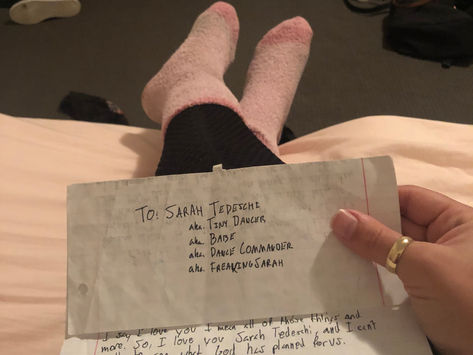 TO: SARAH TEDESCHI
aka. TINY DANCER
aka. BABE
aka. DANCE COMMANDER
aka. FREAKINGSARAH
I say I love you I mean all of those things and
more. So, I love you Sarah Tedeschi, and I can't
what God has planned for us.